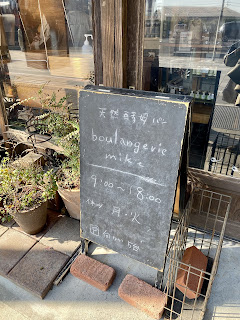 天然酵母パン
boulangerie
mike
9:00〜18:00
休み 月・火